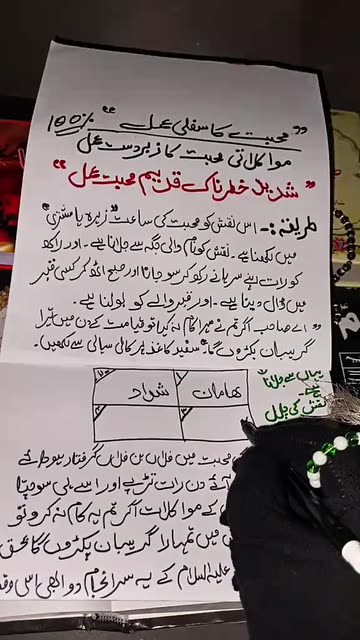 "محبت کا سفلی عمل" 100%
موکلاتی محبت کا زبردست عمل
"شدید خطرناک قدیم محبت عمل"
طریقہ:- اس نقش کو محبت کی ساعت "زہرہ یا مشتری"
میں لکھنا ہے۔ نقش کو نام والی جگہ سے جلانا ہے۔ اور راکھ
کو رات اپنے سرہانے رکھ کر سو جانا اور صبح اٹھ کر کسی قبر
میں ڈال دینا ہے۔ اور قبر والے کو بولنا ہے۔
"اے صاحب اگر تم نے میرا کام نہ کیا تو قیامت کے دن میں تیرا
گریبان پکڑوں گا۔" سفید کاغذ پر کالی سیاہی سے لکھیں۔
یہاں سے جلانا
ہے۔
نقش کی
هامان شداد
محبت میں فلاں بن فلاں گرفتار ہو جائے
دن رات تڑپے اور اسے ہی سوچتا
کے موکلات اگر تم یہ کام نہ کرو تو
میں تمہارا گریبان پکڑوں گا بحق
علیہ السلام کے یہ سرانجام دو ابھی اسی وقت